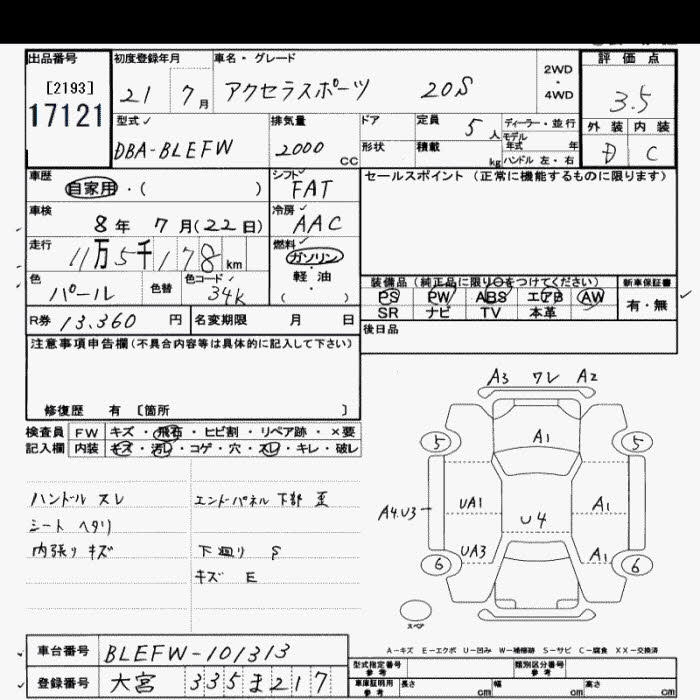 出品番号 初度登録年月 車名・グレード 2WD・4WD 評価点
[2193] 17121 21 7月 アクセラスポーツ 20S 3.5
型式 排気量 ドア 定員 5人 ディーラー・並行 外装 内装
DBA-BLEFW 2000cc 形状 積載 kg モデル年式 年 ハンドル 左・右 D C
車歴 シフト セールスポイント(正常に機能するものに限ります)
自家用・( ) FAT
車検 冷房
8年 7月(22日) AAC
走行 燃料
11万5千178km ガソリン・軽油 ( )
色 色替 色コード 装備品(純正品に限り○をつけてください) 新車保証書
パール 34K PS PW ABS エアB AW 有・無
SR ナビ TV 本革
R券 13,360円 名変期限 月 日 後日品
注意事項申告欄(不具合内容等は具体的に記入して下さい)
修復歴 有 [箇所 ]
検査員 FW キズ・飛石・ヒビ割・リペア跡・×要
記入欄 内装 キズ・汚レ・コゲ・穴・スレ・キレ・破レ
A3 ワレ A2
A1
5 5
ハンドル スレ エンドパネル下部 歪
シート ヘタリ
内張り キズ 下廻り S
キズ E
UA1 A1
A4.U3 U4
UA3 A1
6 6
スペア
A-キズ E-エクボ U-凹み W-補修跡 S-サビ C-腐食 XX-交換済
車台番号 BLEFW-101313 型式指定番号 参考 類別区分番号 参考
登録番号 大宮 335ま217 車庫証明用 参考 長さ cm 幅 cm 高さ cm